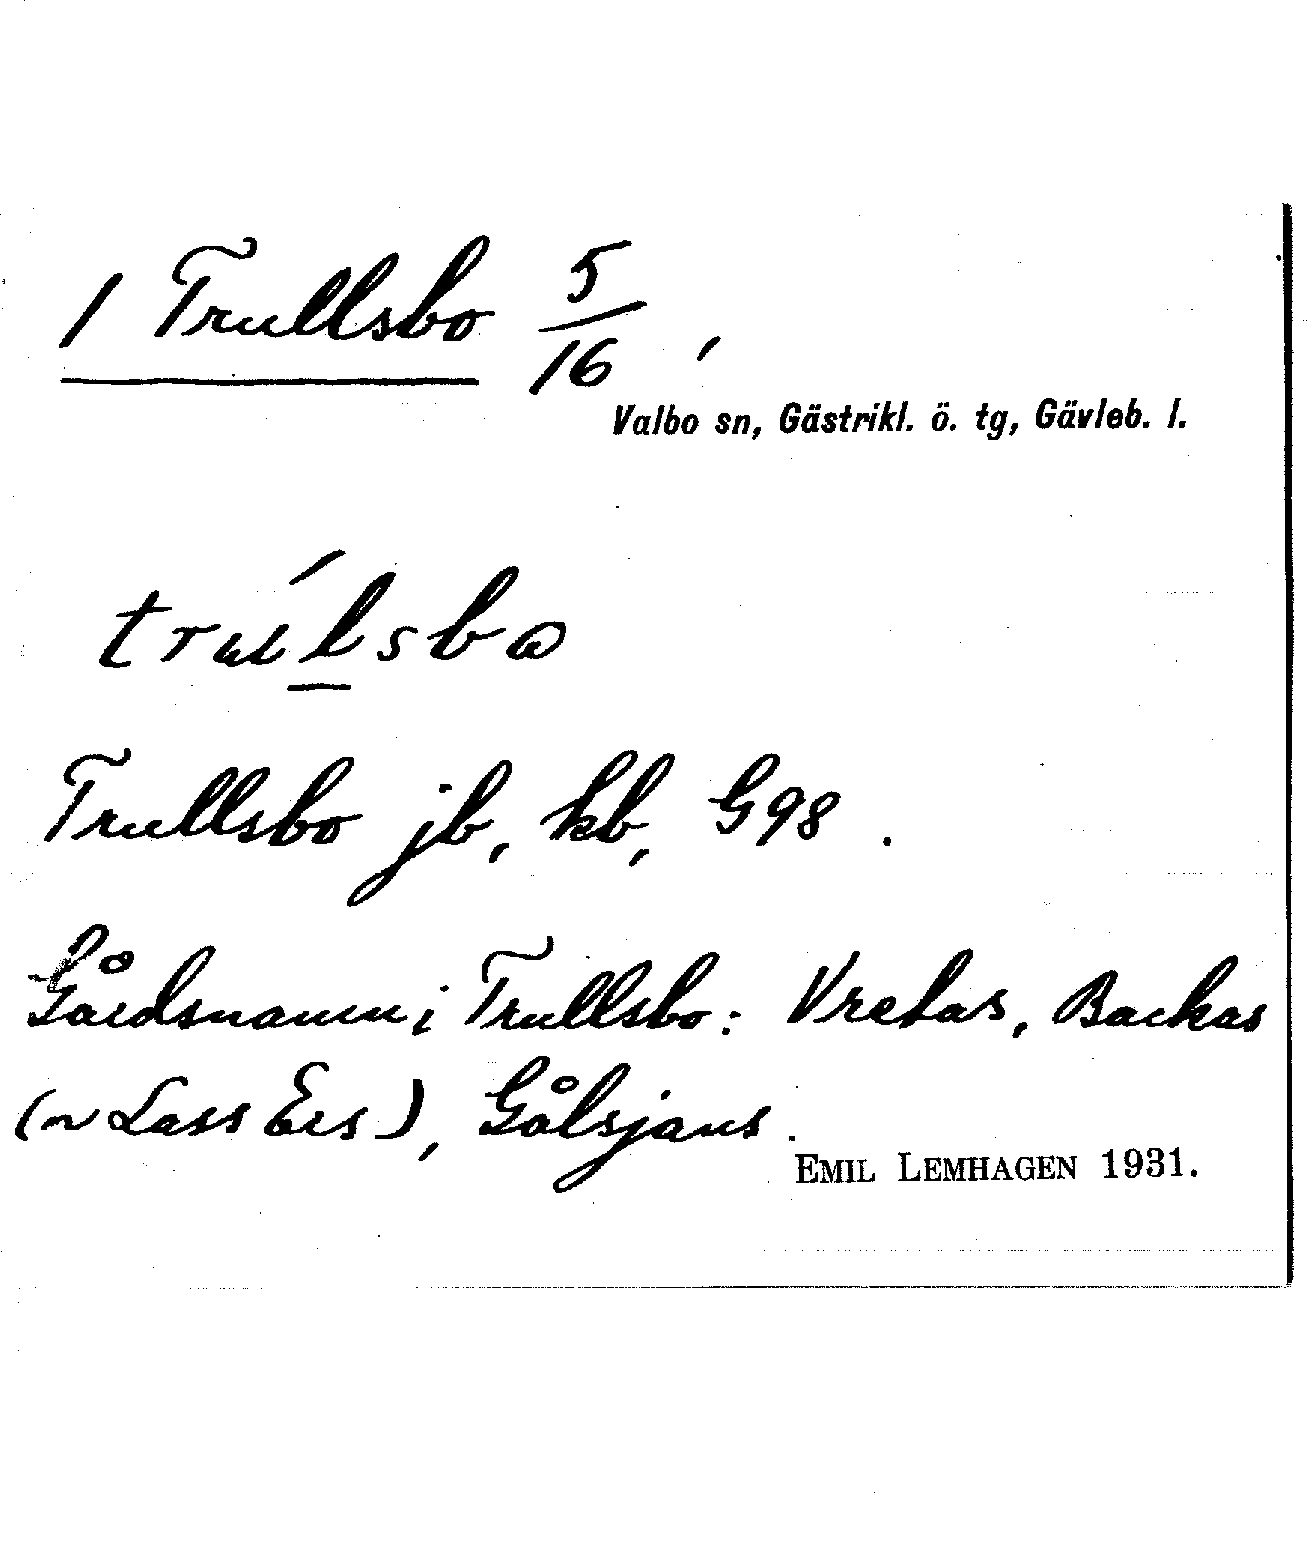 1 Trullsbo 5/16,
Valbo sn, Gästrikl. ö. tg, Gävleb. l.
trúlsbo
Trullsbo jb, kb, G98.
Gårdsnamn i Trullsbo: Vretas, Backas
(~ Lass Ers), Gålsjans.
EMIL LEMHAGEN 1931.